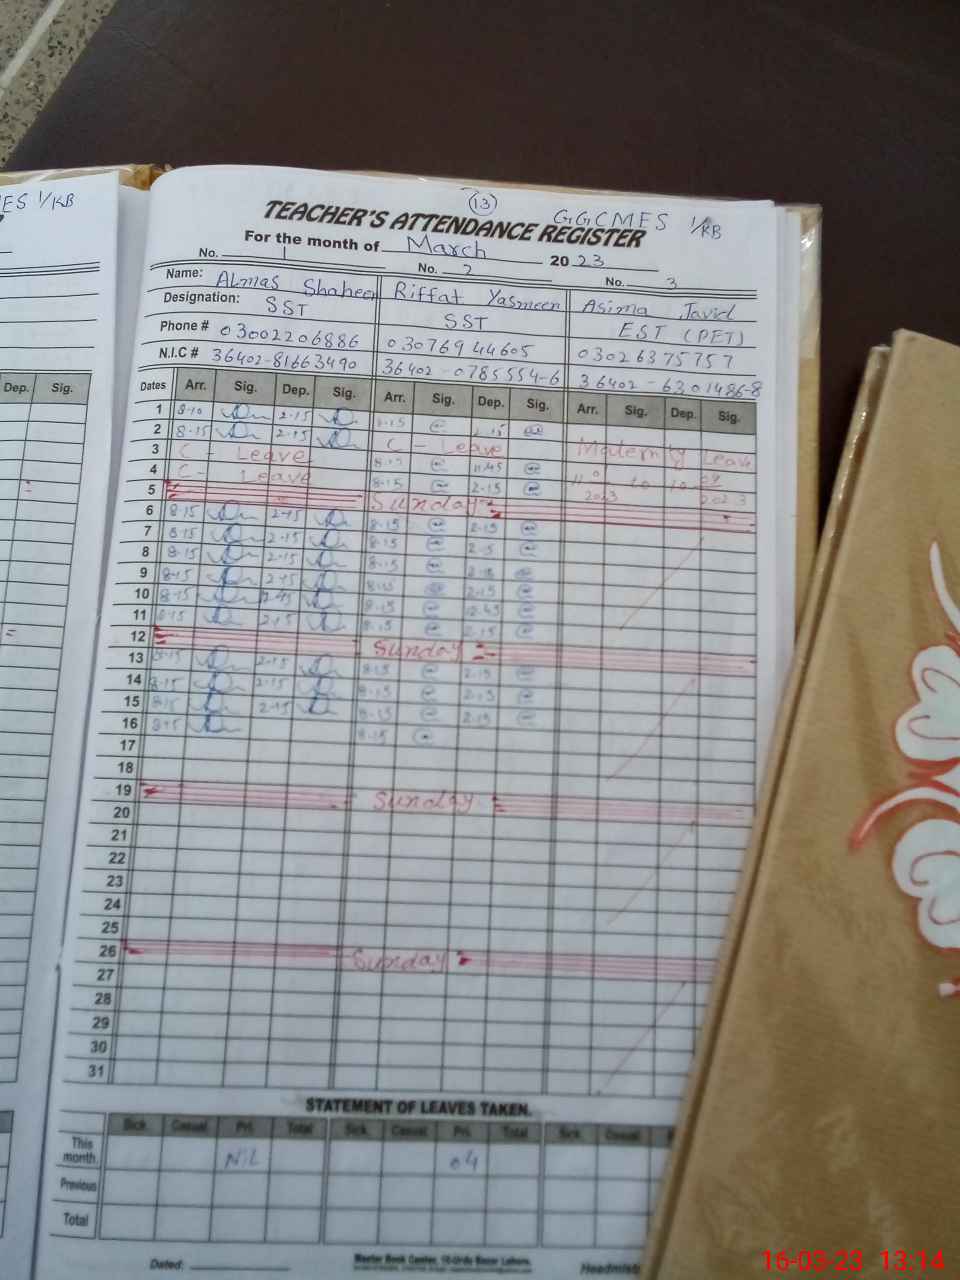 ES 1/KB
13
GGCMES 1/KB
TEACHER'S ATTENDANCE REGISTER
For the month of March 2023
No. 1 No. 2 No. 3
Name: Almas Shaheen Riffat Yasmeen Asima Javid
Designation: SST SST EST (PET)
Phone # 03002206886 03076944605 03026375757
N.I.C # 36402-81663490 36402-0785554-6 36402-6301486-8
Dep. Sig.
Dates Arr. Sig. Dep. Sig. Arr. Sig. Dep. Sig. Arr. Sig. Dep. Sig.
1 8-10 2-15
2 8-15 2-15 C - Leave Maternity Leave
3 C - Leave
4 C - Leave 8-15 2-15 2023 to 2023
5 Sunday
6 8-15 2-15 8-15 2-15
7 8-15 2-15 8-15
8 8-15 2-15 8-15
9 8-15 2-15 2-15
10 8-15 8-15 12-45
11 8-15 2-15 8-15 2-15
12 Sunday
13 8-15 2-15 8-15 2-15
14 8-15 2-15 8-15 2-15
15 8-15 2-15 8-15 2-15
16 8-15 8-15
17
18
19 Sunday
20
21
22
23
24
25
26 Sunday
27
28
29
30
31
STATEMENT OF LEAVES TAKEN.
Sick Casual Pri. Total Sick. Casual Pri. Total Sick. Casual
This month. Nil 04
Previous
Total
Dated:
Master Book Center, 10-Urdu Bazar Lahore.
Headmist
16-03-23 13:14